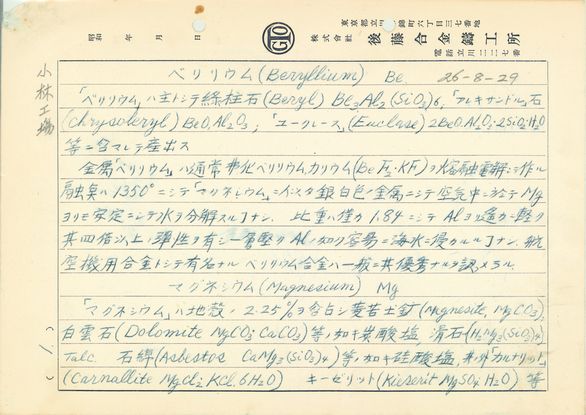 東京都立川市錦町六丁目三七番地
株式會社 後藤合金鑄工所
電話立川二二七番
昭和 年 月 日
GTO
小林工場
ベリリウム(Beryllium) Be. 26-8-29
「ベリリウム」ハ主トシテ緑柱石(Beryl) Be3Al2(SiO3)6, 「アレキサンドル」石
(Chrysoberyl) BeO.Al2O3; 「ユークレース」(Euclase) 2BeO.Al2O3・2SiO2・H2O
等ニ含マレテ産出ス
金属「ベリリウム」ハ通常弗化ベリリウムカリウム(BeF2・KF)ヲ熔融電解シテ作ル
融点ハ1350°ニシテ「マグネシウム」ニ似タ銀白色ノ金属ニシテ空気中ニ於テ Mg
ヨリモ安定ニシテ水ヲ分解スルコトナシ. 比重ハ僅カ 1.84 ニシテ Al ヨリ遙カニ軽ク
其四倍以上ノ弾性ヲ有シ一層堅ク Alノ如ク容易ニ海水ニ侵カルルコトナシ. 航
空機用合金トシテ有名ナル ベリリウム合金ハ一般ニ其優秀ナルヲ認メラル.
マグネシウム(Magnesium) Mg
「マグネシウム」ハ地殻ノ 2.25%ヲ占シ 菱苦土鉱(Magnesite, MgCO3),
白雲石(Dolomite MgCO3・CaCO3)等ノ如キ炭酸塩 滑石(H2Mg3(SiO3)4)
Talc. 石綿(Asbestos CaMg3(SiO3)4)等ノ如キ硅酸塩, 其外「カルナリット」
(Carnallite MgCl2.KCl.6H2O) キーゼリット(Kieserit MgSO4.H2O) 等
(1.)